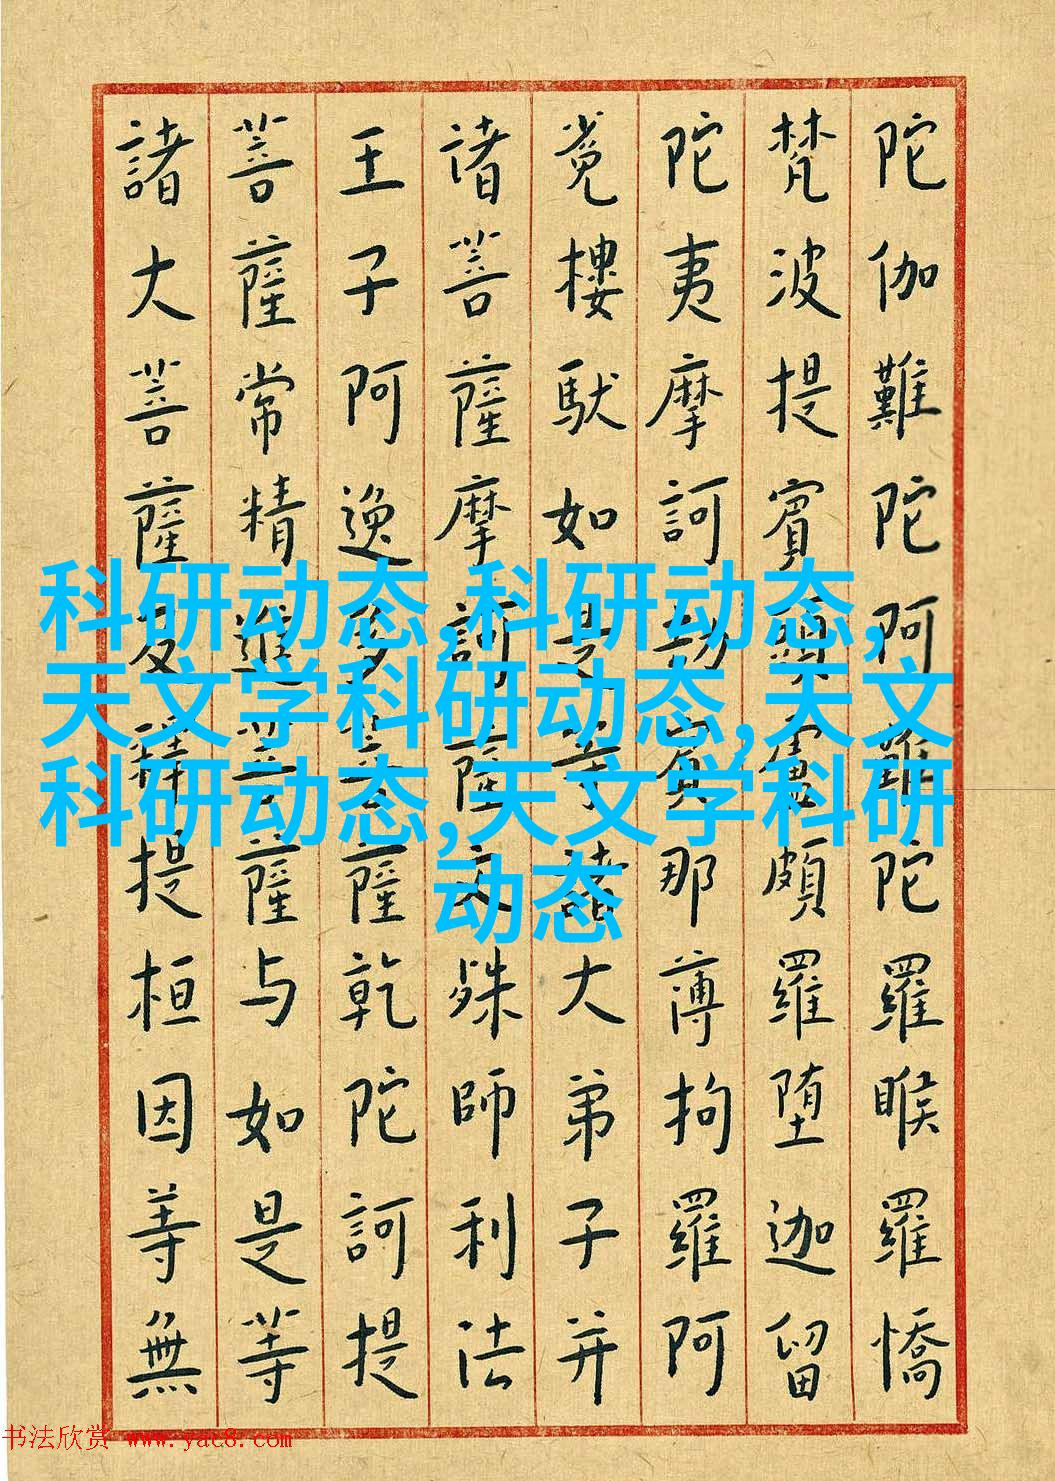 陀伽難陀阿難陀羅睺羅憍
梵波提賓頭盧頗羅堕迦留
陀夷摩訶劫賓那薄拘羅阿
樓馱如是等諸大弟子并
诸菩薩摩訶薩文殊師利法
王子阿逸多菩薩乾陀訶提
菩薩常精進菩薩与如是等
諸大菩薩及釋提桓因等無
科研动态,科研动态,
天文学科研动态,天文
科研动态,天文学科研
动态
书法欣赏 www.yac8.com